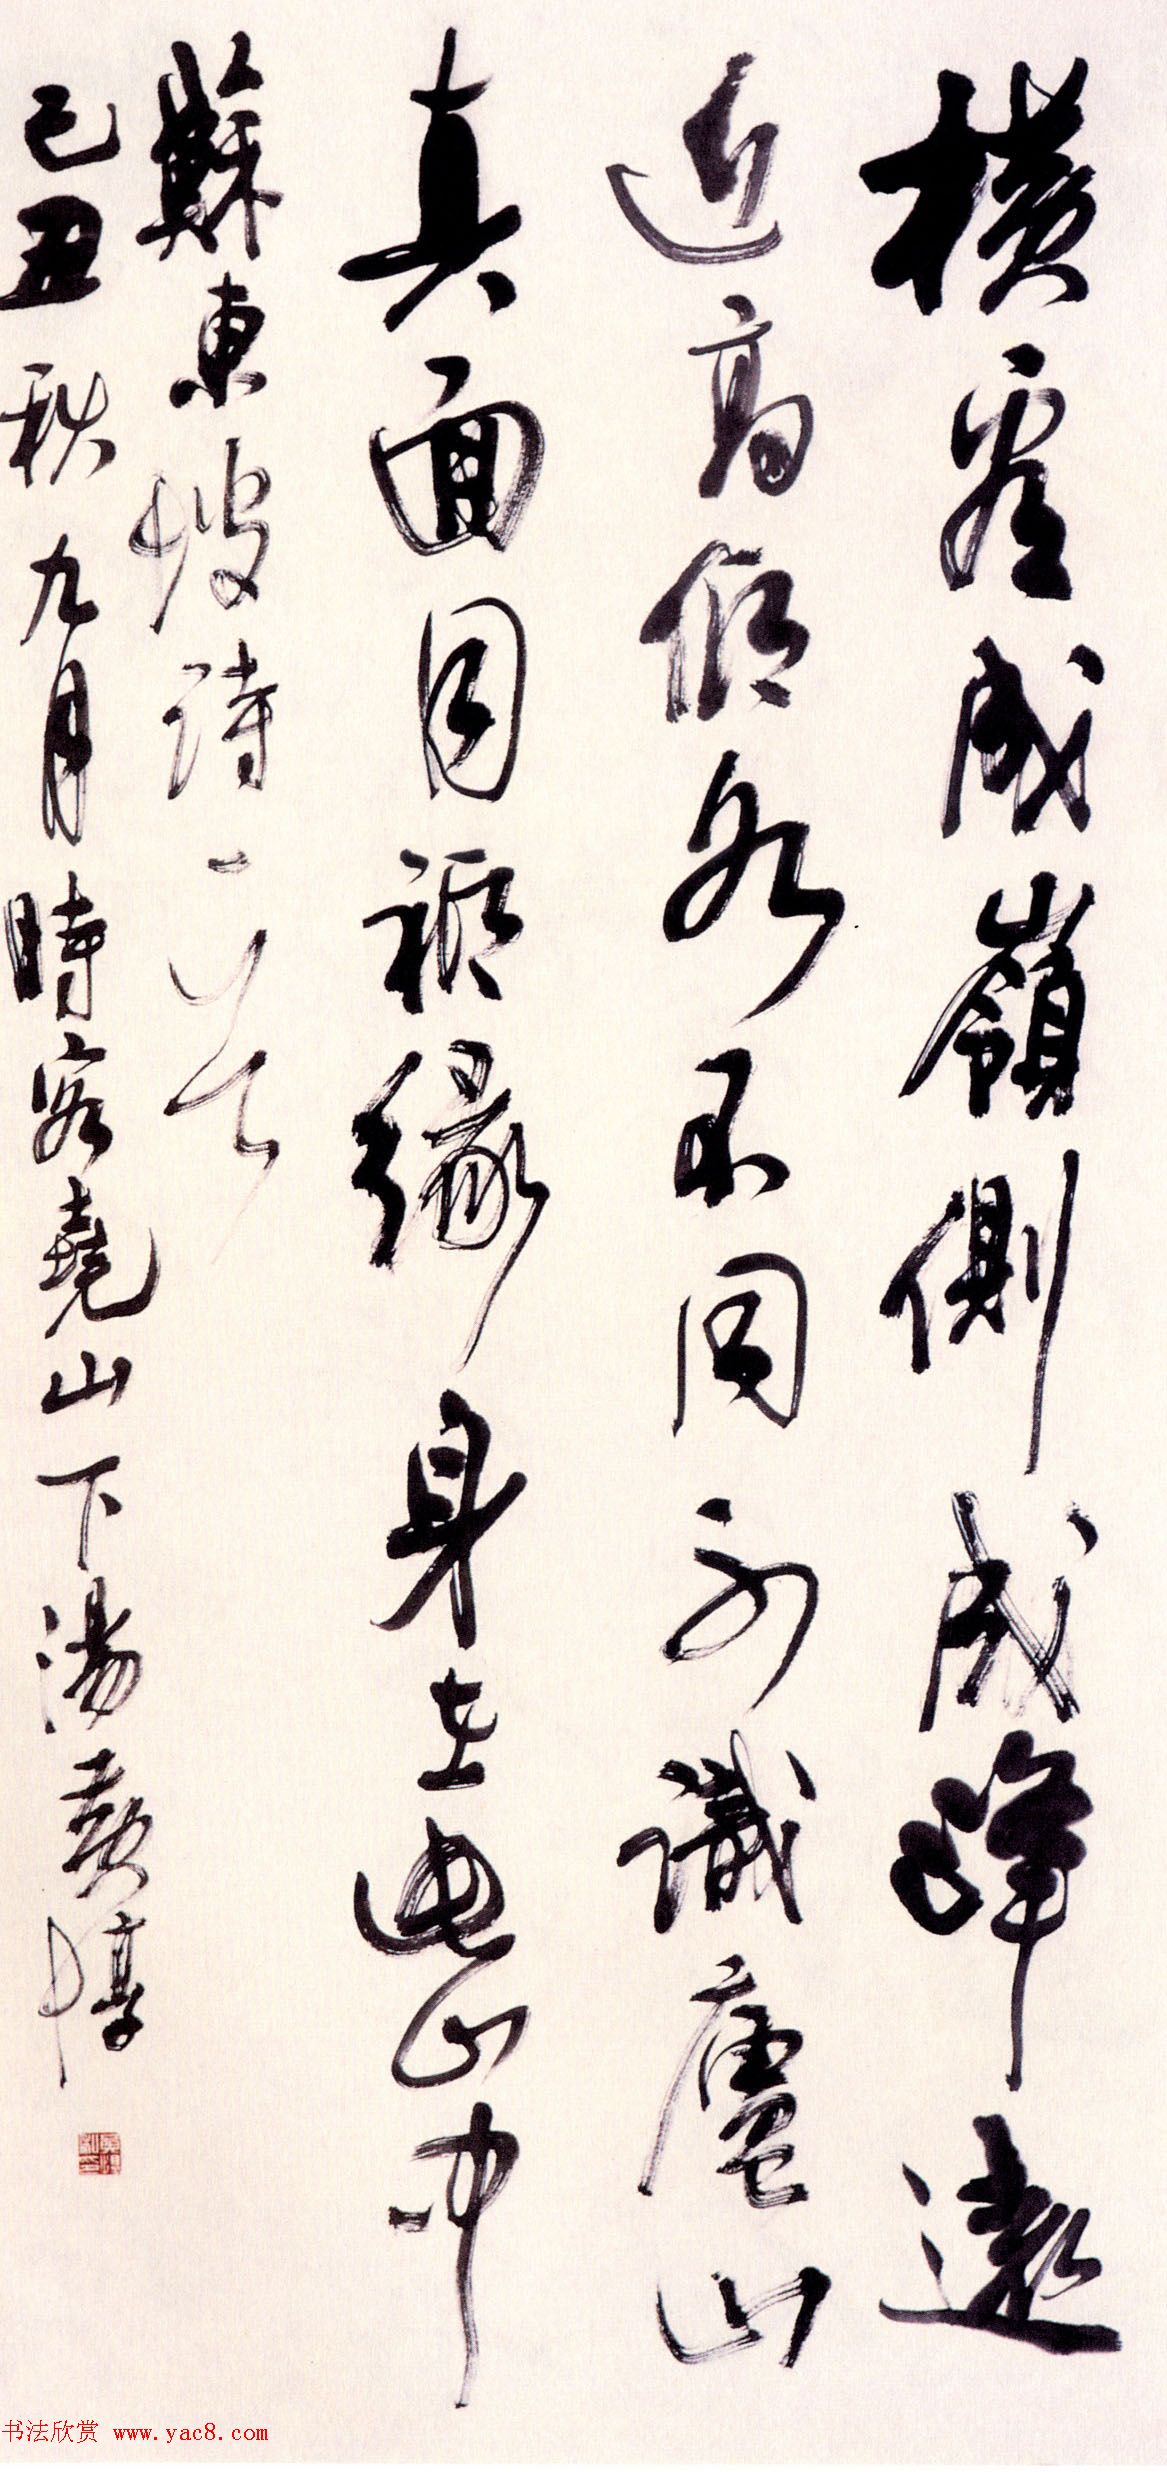 橫看成嶺側成峰遠
近高低各不同不識廬山
真面目祇緣身在此山中
蘇東坡詩一首
己丑秋九月時客堯山下湯黃惇
书法欣赏 www.yac8.com